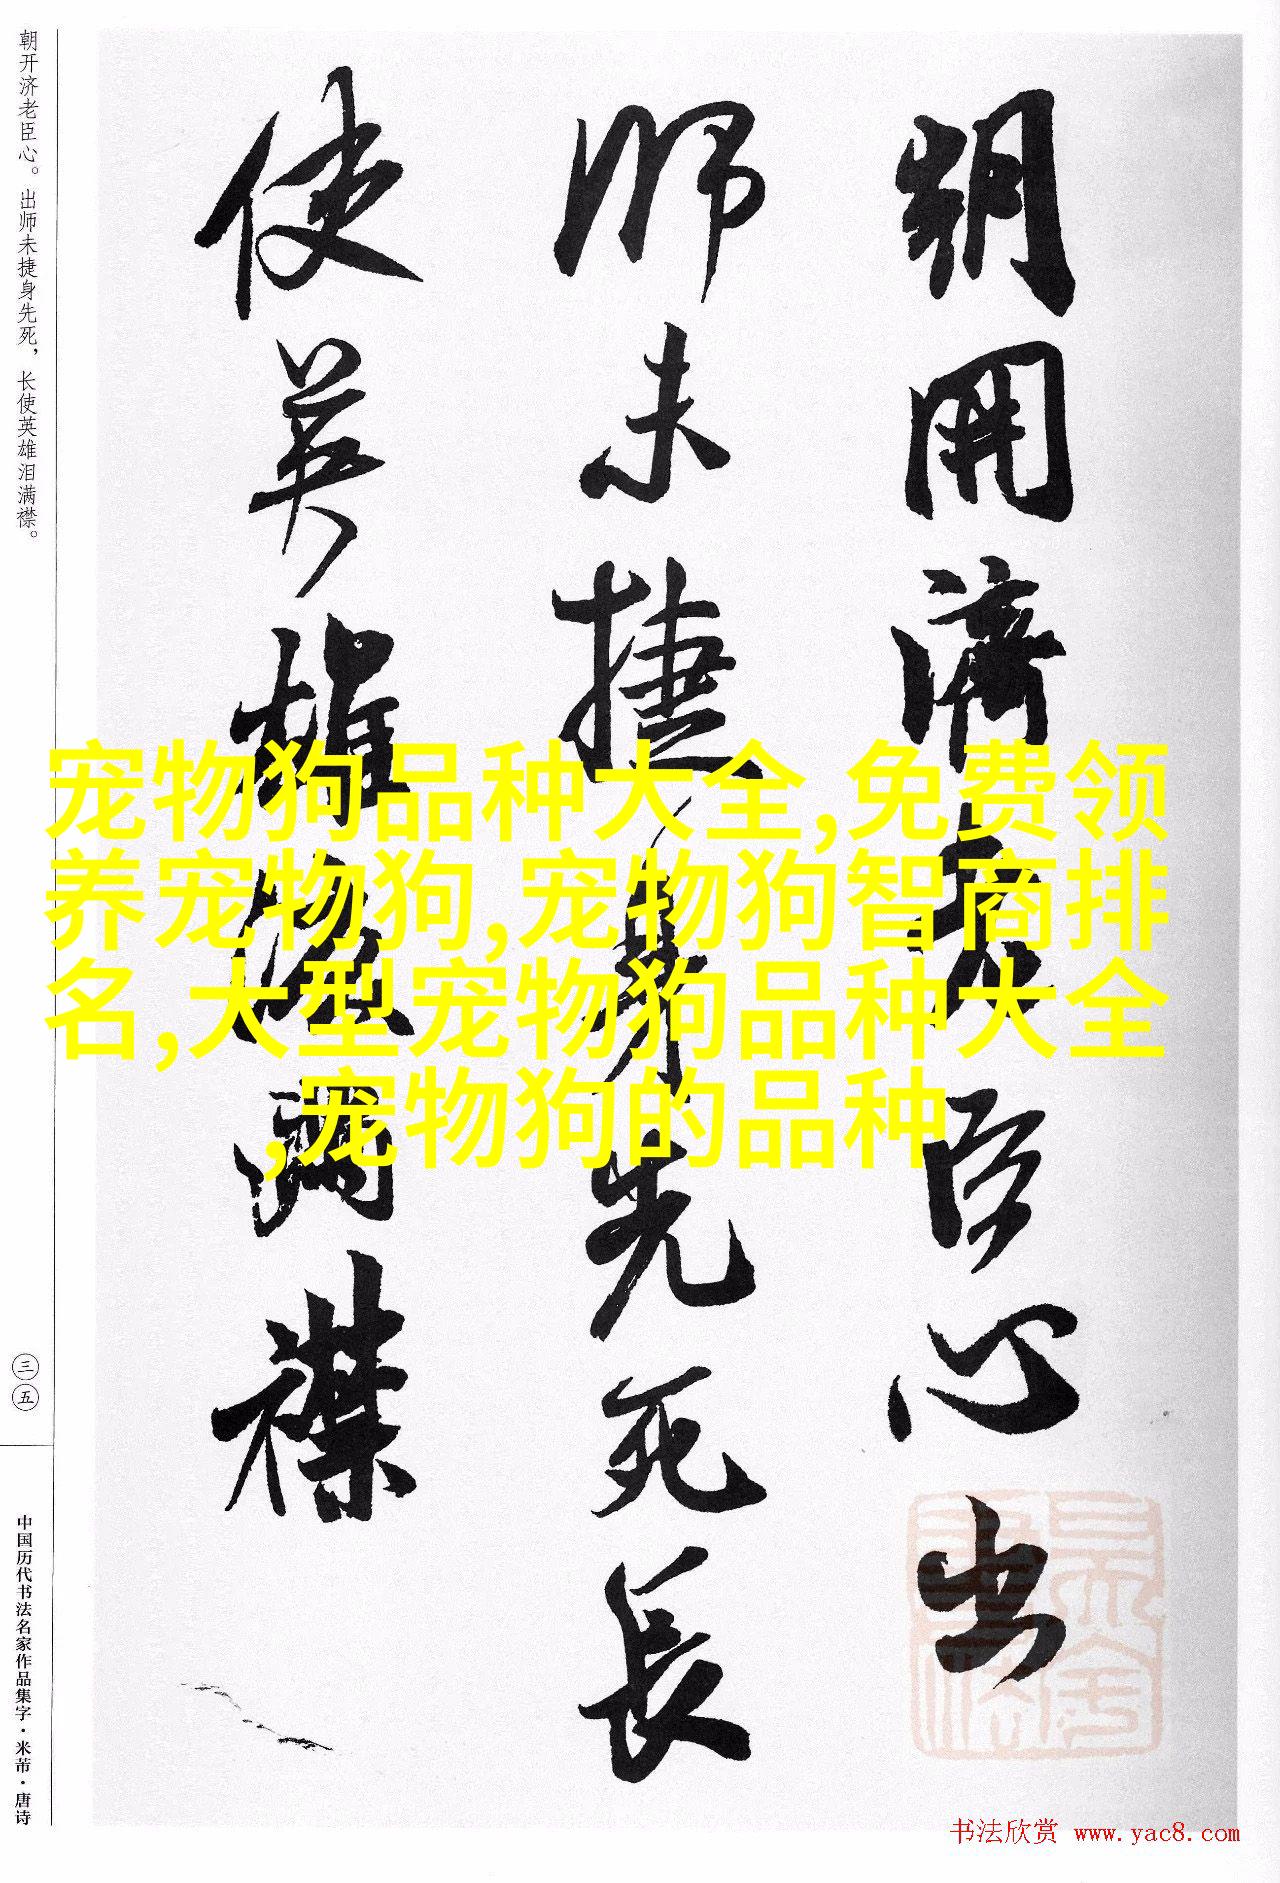 朝开济老臣心。出师未捷身先死，长使英雄泪满襟。
三五
中国历代书法名家作品集字·米芾·唐诗
朝開濟老臣心出
師未捷身先死長
使英雄淚滿襟
宠物狗品种大全,免费领
养宠物狗,宠物狗智商排
名,大型宠物狗品种大全
,宠物狗的品种
书法欣赏 www.yac8.com